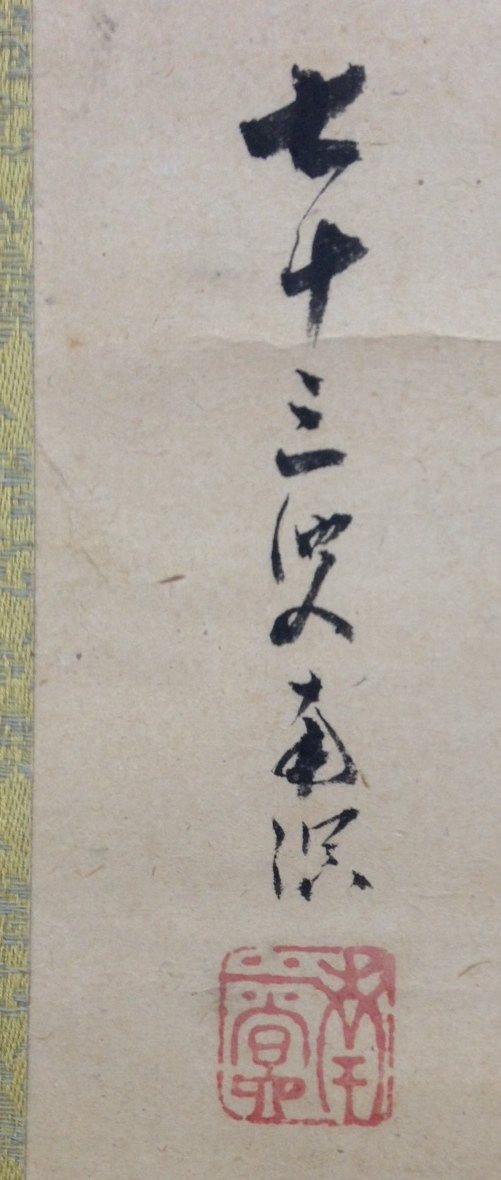 七十三傁南溟